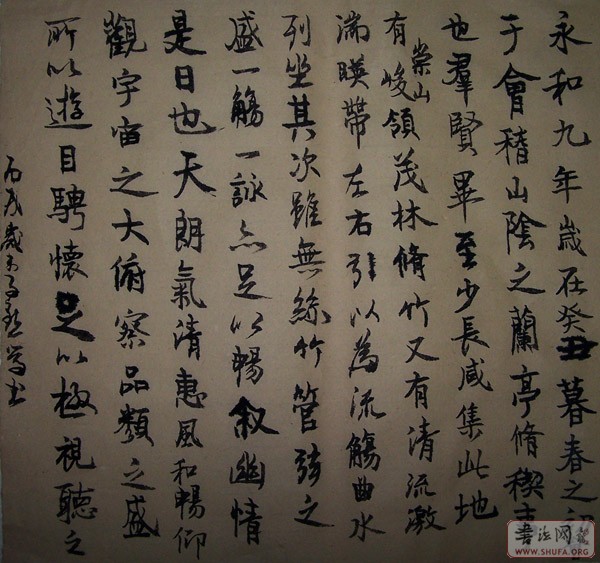 永和九年歲在癸丑暮春之初
于會稽山陰之蘭亭脩稧事
也羣賢畢至少長咸集此地
有崇山峻領茂林脩竹又有清流激
湍暎帶左右引以為流觴曲水
列坐其次雖無絲竹管弦之
盛一觴一詠亦足以暢叙幽情
是日也天朗氣清惠風和暢仰
觀宇宙之大俯察品類之盛
所以遊目騁懷足以極視聽之
丙戌歲末
書法网
WWW.SHUFA.ORG